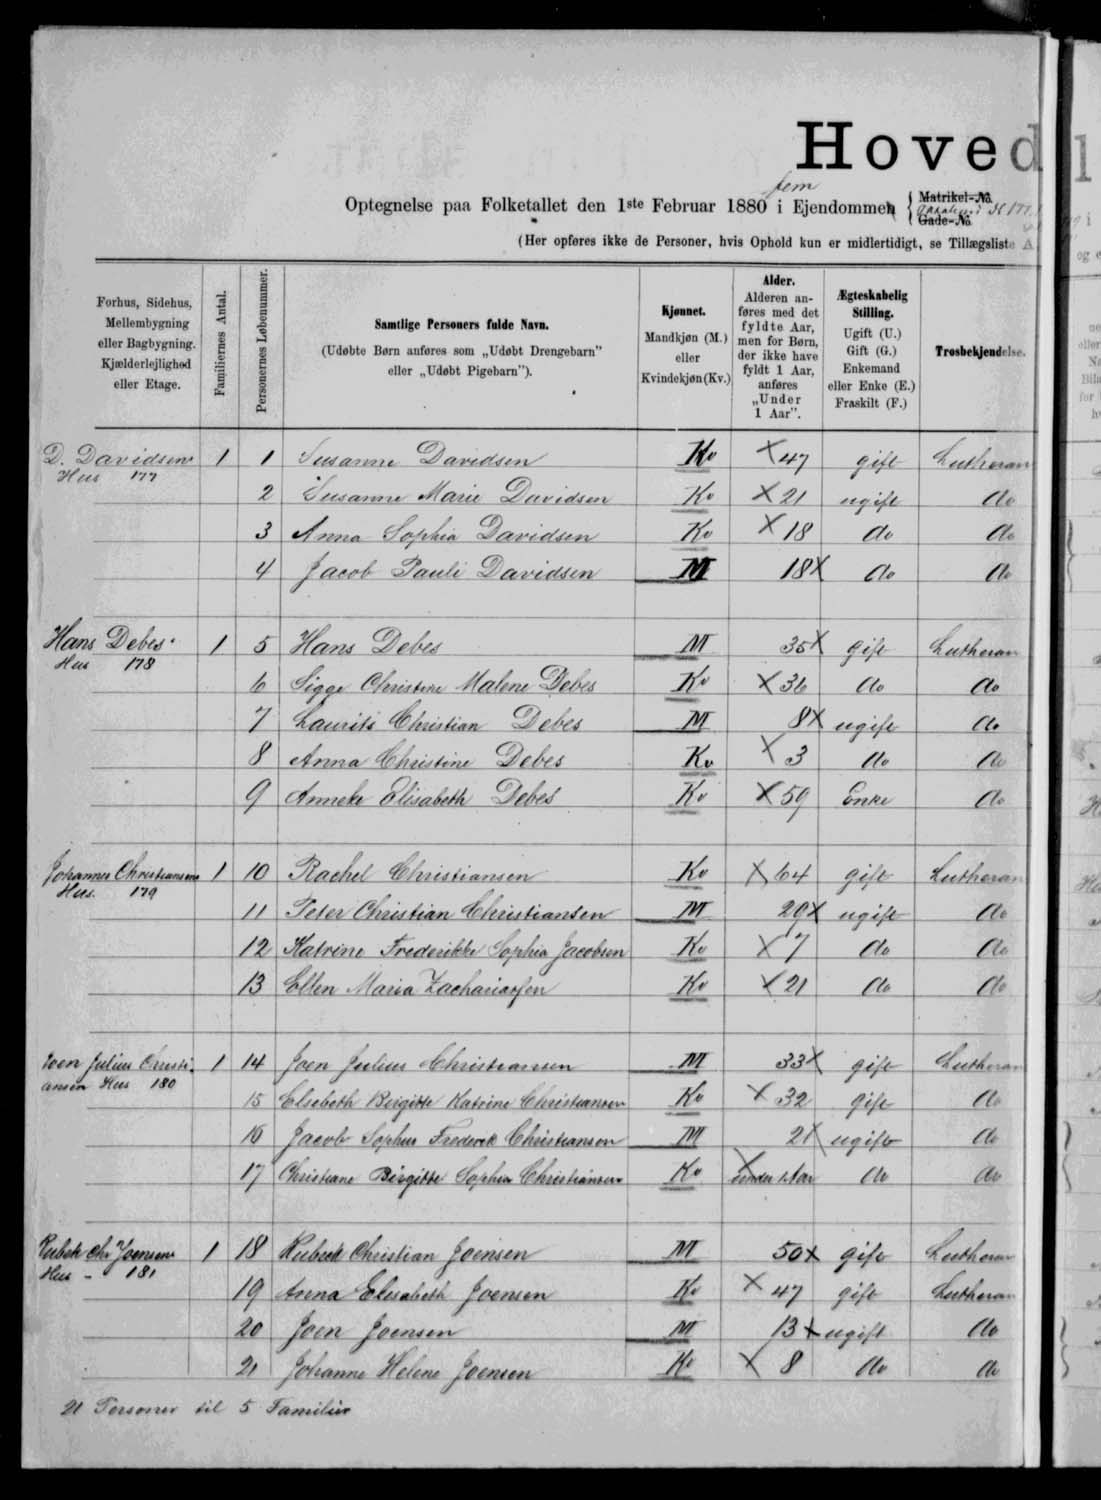 Hoved
Optegnelse paa Folketallet den 1ste Februar 1880 fem i Ejendommen { Matrikel-No.
Gade-No.
(Her opføres ikke de Personer, hvis Ophold kun er midlertidigt, se Tillægsliste A
Forhus, Sidehus, Mellembygning eller Bagbygning. Kjælderlejlighed eller Etage.
Familiernes Antal.
Personernes Løbenummer.
Samtlige Personers fulde Navn.
(Udøbte Børn anføres som „Udøbt Drengebarn” eller „Udøbt Pigebarn”).
Kjønnet.
Mandkjøn (M.) eller Kvindekjøn (Kv.)
Alder.
Alderen anføres med det fyldte Aar, men for Børn, der ikke have fyldt 1 Aar, anføres „Under 1 Aar”.
Ægteskabelig Stilling.
Ugift (U.) Gift (G.) Enkemand eller Enke (E.) Fraskilt (F.)
Trosbekjendelse.
D. Davidsens 1 1 Susanne Davidsen Kv X 47 gift Lutheran
Hus 177
2 Susanne Marie Davidsen Kv X 21 ugift do
3 Anna Sophia Davidsen Kv X 18 do do
4 Jacob Pauli Davidsen M 18 X do do
Hans Debes 1 5 Hans Debes M 35 X gift Lutheran
Hus 178
6 Sigge Christine Malene Debes Kv X 36 do do
7 Laurits Christian Debes M 8 X ugift do
8 Anna Christine Debes Kv X 3 do do
9 Anneke Elisabeth Debes Kv X 59 Enke do
Johannes Christiansens 1 10 Rachel Christiansen Kv X 64 gift Lutheran
Hus 179
11 Peter Christian Christiansen M 29 X ugift do
12 Katrine Frederikke Sophia Jacobsen Kv X 7 do do
13 Ellen Maria Zachariassen Kv X 21 do do
Joen Julius Christi- 1 14 Joen Julius Christiansen M 33 X gift Lutheran
ansen Hus 180
15 Elsebeth Birgitte Katrine Christiansen Kv X 32 gift do
16 Jacob Sophus Frederik Christiansen M 2 X ugift do
17 Christiane Birgitte Sophia Christiansen Kv X under 1 Aar do do
Rubek Chr Joensens 1 18 Rubek Christian Joensen M 50 X gift Lutheran
Hus - 181
19 Anna Elisabeth Joensen Kv X 47 gift Lutheran
20 Joen Joensen M 13 X ugift do
21 Johanne Helene Joensen Kv X 8 do do
21 Personer til 5 Familier